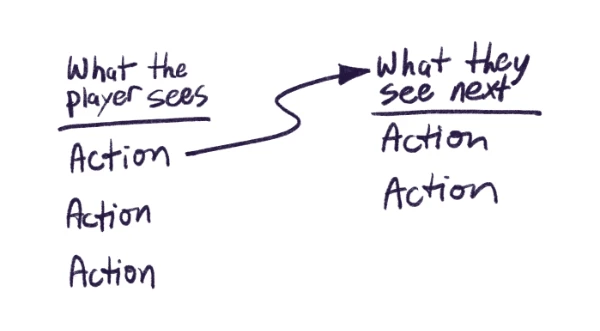 What the
player sees
Action
Action
Action
What they
see next
Action
Action